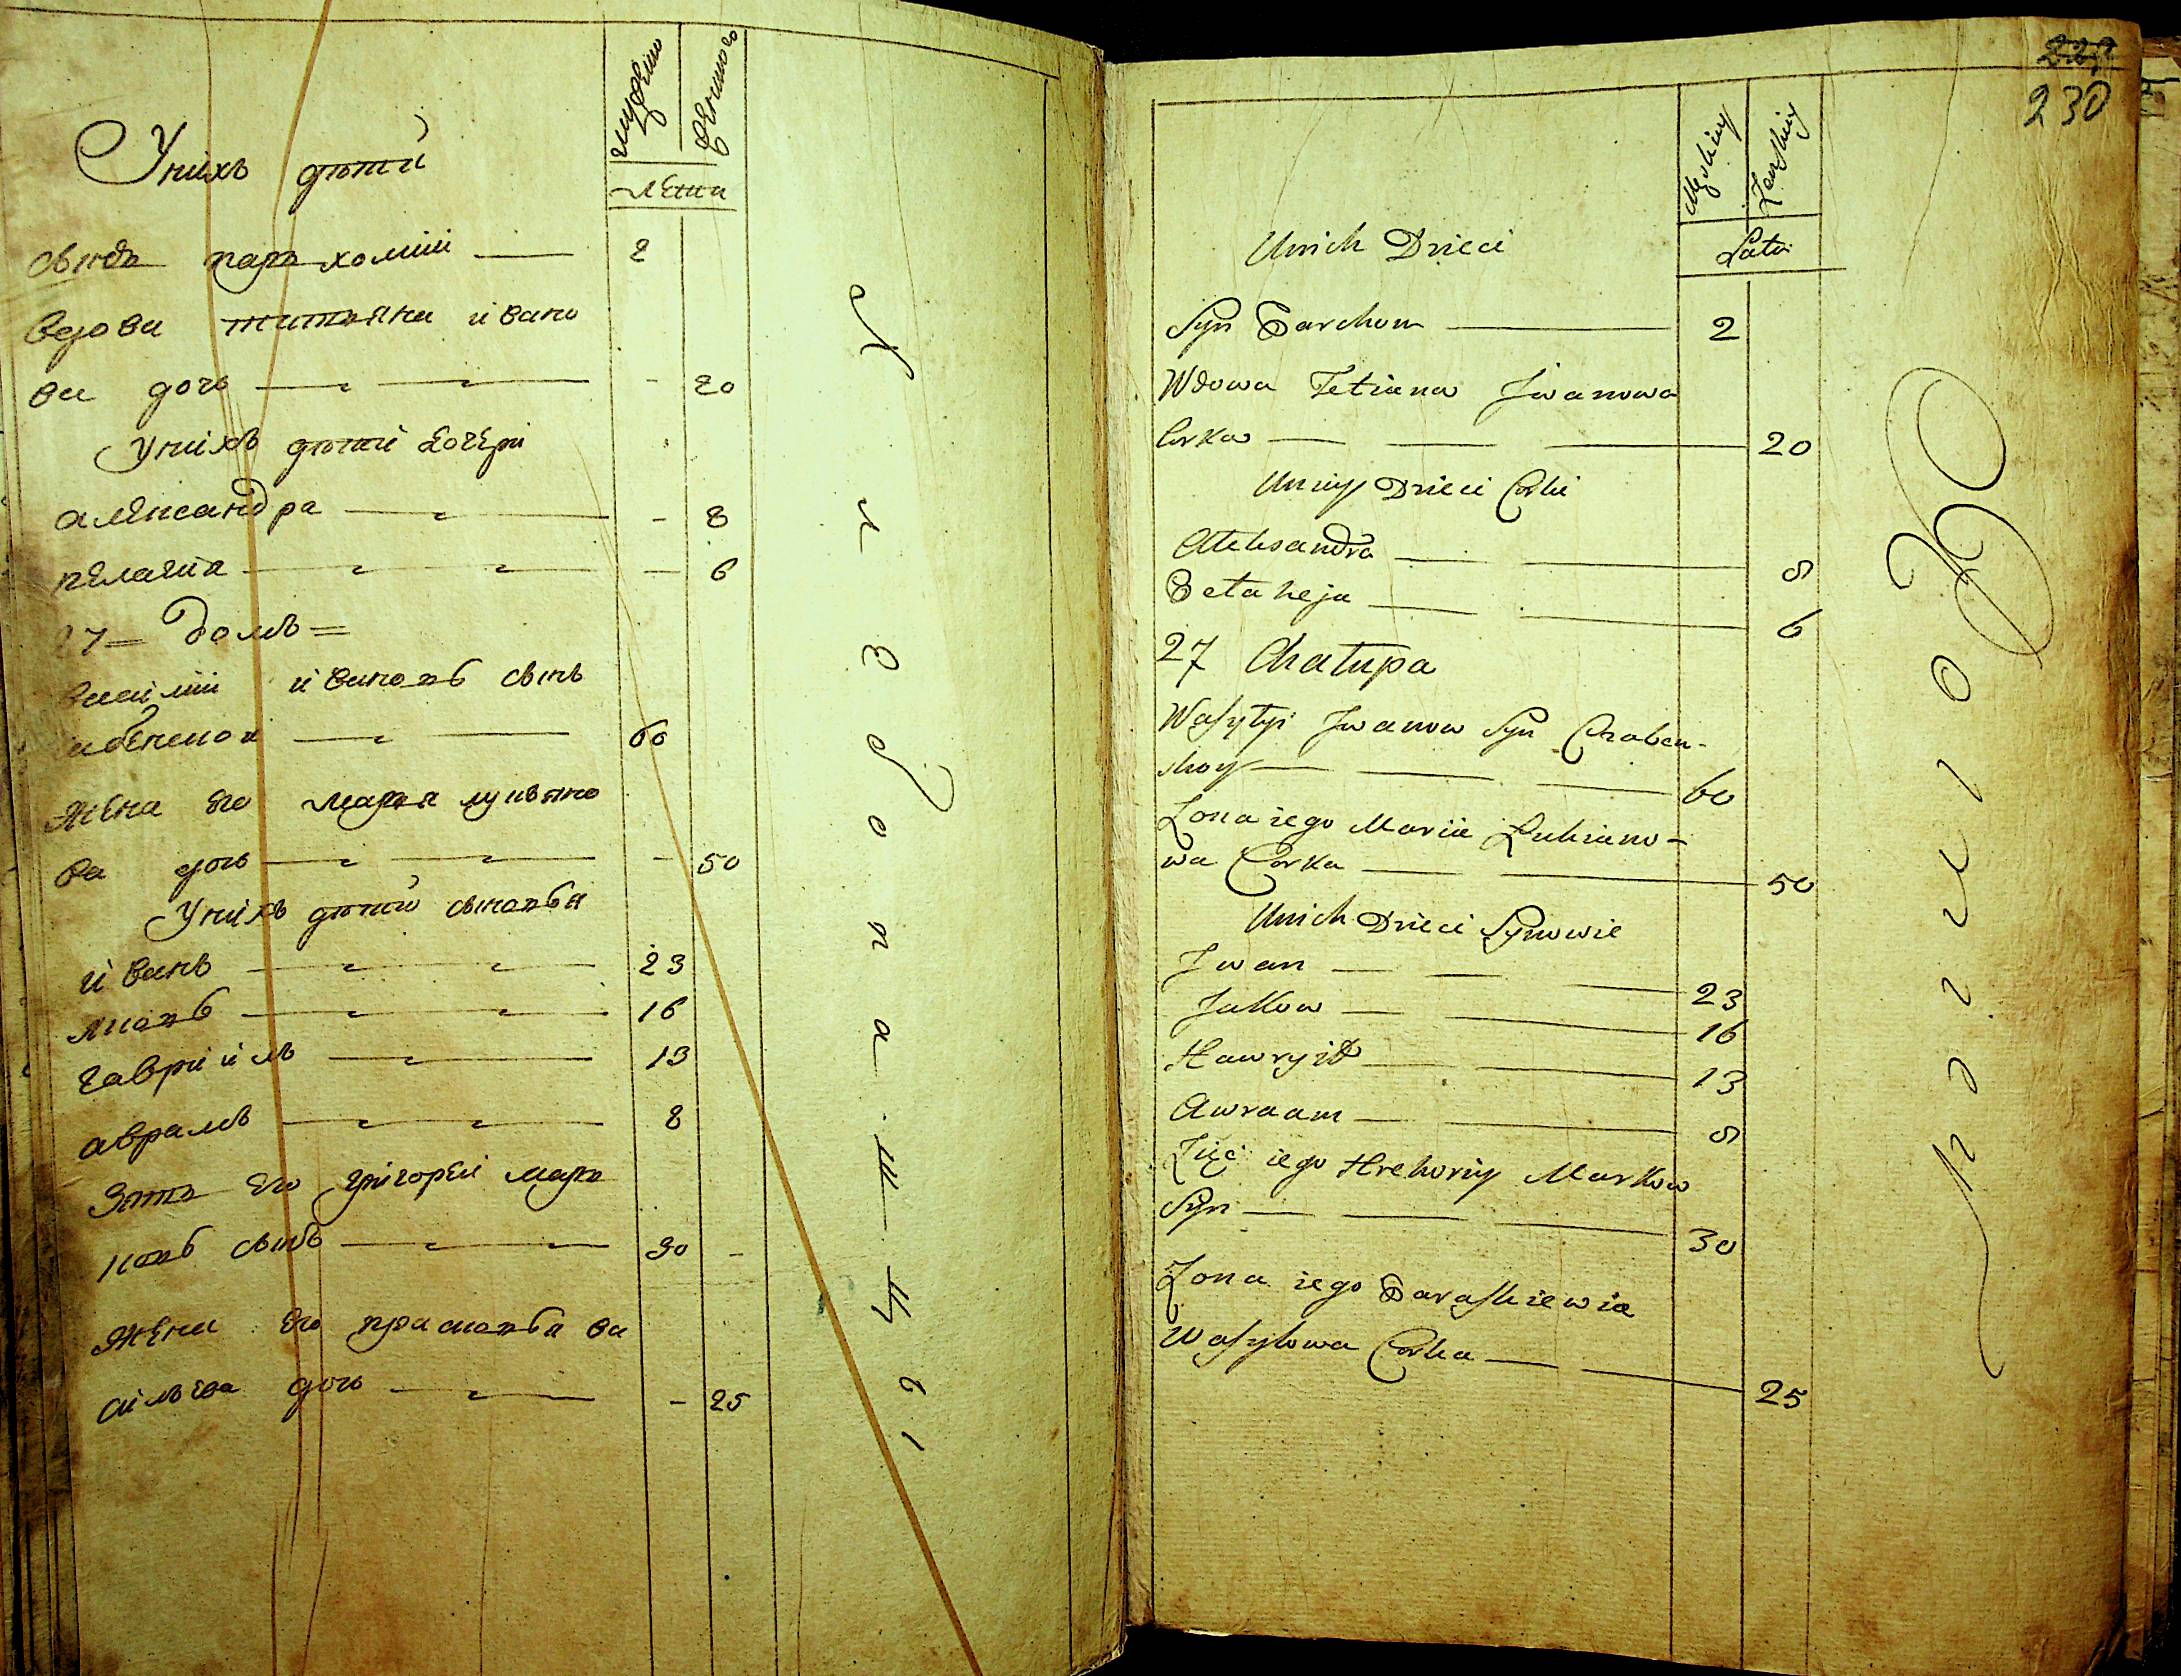 мужеска
женскаго
Унихъ дѣтей
лета
сынъ пархомiй 2
вдова татияна ивано
ва дочь 20
Унихъ дѣтей дочери
александра 8
пелагия 6
27 домъ
василiй ивановъ сынъ
60
жена его мария лукъяно
ва дочь 50
Унихъ дѣтей сыновья
иванъ 23
яковъ 16
гаврiилъ 13
аврамъ 8
зять его григорей марк
ковъ сынъ 30
жена его прасковья ва
сильева дочь 25
230
Męskiey
Żenskiey
Unich Dzieci
Lata
Syn Parchom 2
Wdowa Tetiana Jwanowa
Corka 20
Uniey Dzieci Corki
Aleksandra 8
Pelaheja 6
27 Chałupa
Wasylyi Jwanow Syn Chaben-
skoy 60
Żona iego Maria Lukiano-
wa Corka 50
Unich Dzieci Synowie
Jwan 23
Jakow 16
Hawryił 13
Awraam 8
Zięć iego Hrehoriy Markow
Syn 30
Żona iego Paraskiewia
Wasylowa Corka 25